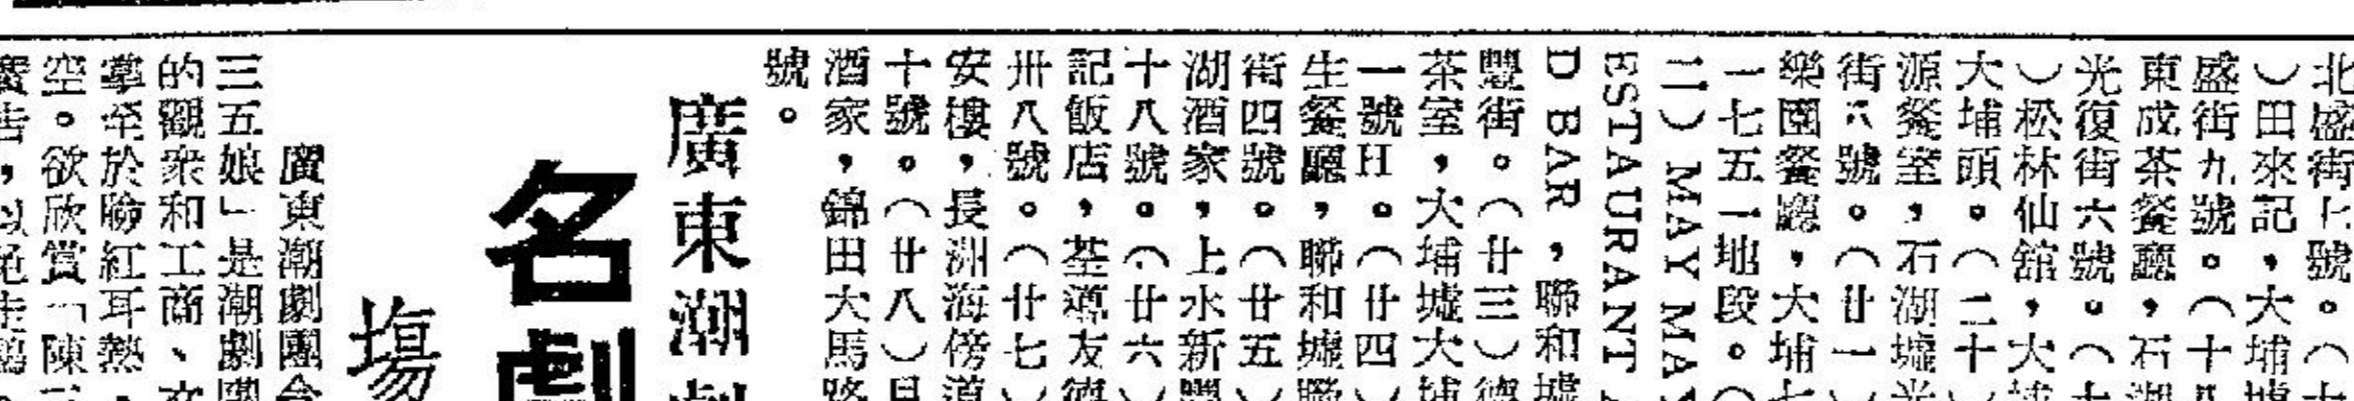 北盛街七號。（十
）田來記，大埔墟
盛街九號。（十八
東成茶餐廳，石湖
光復街六號。（十
）松林仙館，大埔
大埔頭。（二十）
源餐室，石湖墟光
街 號。（廿一）
樂園餐廳，大埔七
一七五一地段。（
二）MAY MAY
ESTAURANT A
D BAR，聯和墟
豐街。（廿三）德
茶室，大埔墟大埔
一號H。（廿四）
生餐廳，聯和墟聯
街四號。（廿五）
湖酒家，上水新豐
十八號。（廿六）
記飯店，荃灣友德
卅八號。（廿七）
安樓，長洲海傍道
十號。（廿八）
酒家，錦田大馬路
號。
廣東潮劇
名劇
場
廣東潮劇團
三五娘」是潮劇團
的觀衆和工商、
掌至於臉紅耳熱，
空。欲欣賞「陳三
廣告，以免